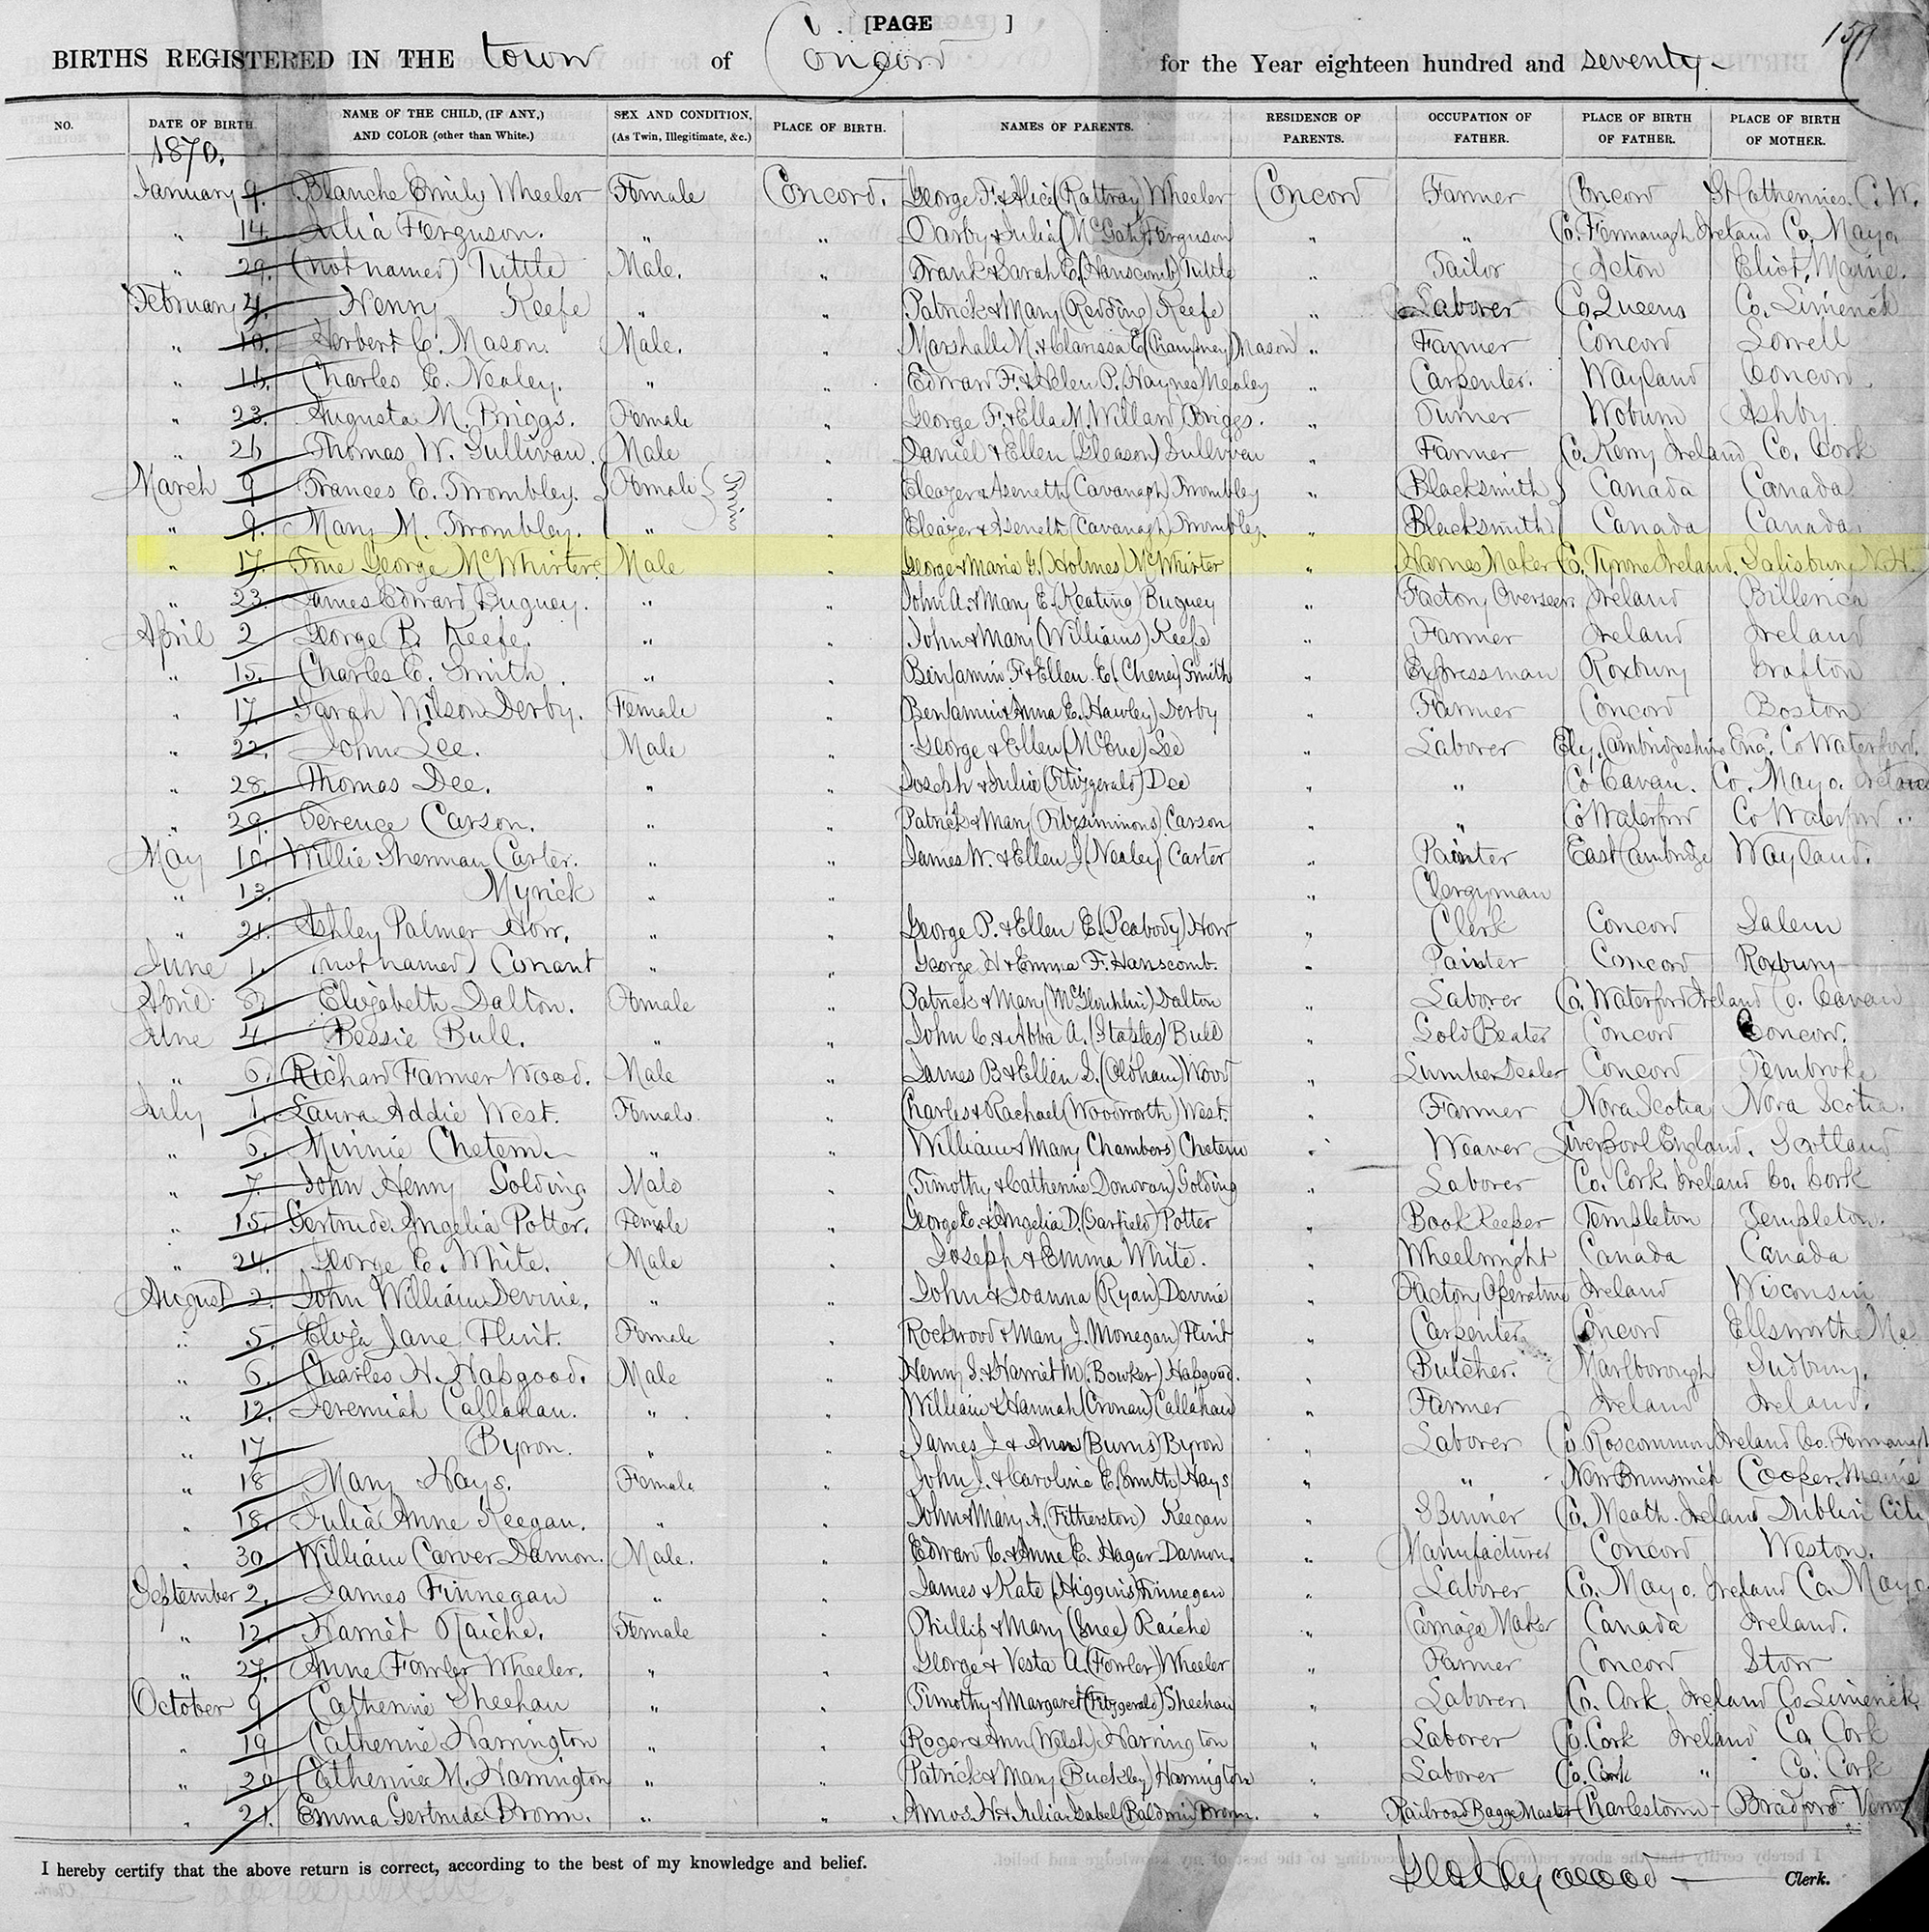 [PAGE ]
BIRTHS REGISTERED IN THE town of Concord for the Year eighteen hundred and seventy-
NO. DATE OF BIRTH. NAME OF THE CHILD, (IF ANY,) AND COLOR (other than White.) SEX AND CONDITION, (As Twin, Illegitimate, &c.) PLACE OF BIRTH. NAMES OF PARENTS. RESIDENCE OF PARENTS. OCCUPATION OF FATHER. PLACE OF BIRTH OF FATHER. PLACE OF BIRTH OF MOTHER.
1870.
January 9. Blanche Emily Wheeler Female Concord. George F. & Alice (Rattray) Wheeler Concord Farmer Concord St Catherines. C.W.
" 14. Julia Ferguson. " " Darby & Julia Ferguson " " Co. Fermanagh Ireland Co. Mayo
" 29. (not named) Tuttle Male. " Frank & Sarah E. (Hanscomb) Tuttle " Tailor Acton Eliot, Maine.
February 4. Henry Keefe " " Patrick & Mary (Redding) Keefe " Laborer Co. Queens Co. Limerick
" 10. Herbert C. Mason. Male. " Marshall M. & Clarissa E. (Champney) Mason " Farmer Concord Lowell
" 16. Charles E. Nealey. " " Edward F. & Helen P. Haynes Nealey " Carpenter. Wayland Concord
" 23. Augusta M. Briggs. Female " George F. & Ella M. Willard Briggs. " Turner Woburn Ashby
" 26 Thomas W. Sullivan. Male " Daniel & Ellen (Gleason) Sullivan " Farmer Co. Kerry Ireland Co. Cork
March 9 Frances E. Trombley. Female Twins " Eleazer & Aseneth (Cavanagh) Trombley " Blacksmith Canada Canada
" 9. Mary M. Trombley. " " Eleazer & Aseneth (Cavanagh) Trombley. " Blacksmith Canada Canada.
" 17. True George McWhirter. Male " George & Maria G. (Holmes) McWhirter " Harness Maker Co. Tyrone Ireland. Salisbury N.H.
" 23. James Edward Buguey. " " John A. & Mary E. (Keating) Buguey " Factory Overseer. Ireland Billerica
April 2 George P. Keefe. " " John & Mary (Williams) Keefe " Farmer Ireland Ireland
" 15. Charles E. Smith. " " Benjamin F. & Ellen E. (Cheney) Smith " Expressman Roxbury Grafton
" 17. Sarah Wilson Derby. Female " Benjamin & Anna E. Hawley) Derby " Farmer Concord Boston
" 22. John Lee. Male " George & Ellen (McCue) Lee " Laborer Ely, Cambridgeshire Eng. Co Waterford.
" 28. Thomas Dee. " " Joseph & Julia (Fitzgerald) Dee " Co Cavan. Co. Mayo. Ireland
" 29. Terence Carson. " " Patrick & Mary (Fitzsimmons) Carson " Co Waterford Co Waterford "
May 10. Willie Sherman Carter. " " James W. & Ellen J. (Nealey) Carter " Painter East Cambridge Wayland.
" 13. Myrick " " " Clergyman
" 21. Ashley Palmer How. " " George P. & Ellen E. (Peabody) How " Clerk Concord Salem
June 1. (not named) Conant " " George H & Emma F. Hanscomb. " Painter Concord Roxbury
April Elizabeth Dalton. Female " Patrick & Mary (McGloughlin) Dalton " Laborer Co. Waterford Ireland Co. Cavan
June 4. Bessie Bull. " " John C. & Abba A. (Staples) Bull " Gold Beater Concord Concord.
" 6. Richard Farmer Wood. Male " James B. & Ellen S. (Oldham) Wood " Lumber Dealer Concord Pembroke
July 1. Laura Addie West. Female. " Charles & Rachael (Woodworth) West. " Farmer Nova Scotia Nova Scotia.
" 6. Minnie Chetem. " " William & Mary Chambers) Chetem " Weaver Liverpool England. Scotland
" 7. John Henry Golding Male " Timothy & Catherine Donovan) Golding " Laborer Co. Cork. Ireland Co. Cork
" 15. Gertrude Angelia Potter. Female " George E. & Angelia D. (Garfield) Potter " Book Keeper Templeton Templeton.
" 24. George E. White. Male " Joseph & Emma White. " Wheelwright Canada Canada
August 2. John William Devine. " " John & Joanna (Ryan) Devine " Factory Operative Ireland Wisconsin
" 5. Eliza Jane Flint. Female " Rockwood & Mary J. Monegan) Flint " Carpenter Concord Ellsworth Me
" 6. Charles H. Hapgood. Male " Henry S. & Harriet M. (Bowker) Hapgood. " Butcher. Marlborough Sudbury.
" 12. Jeremiah Callahan. " " William & Hannah (Cronan) Callahan " Farmer Ireland Ireland.
" 17 Byron. " " James J. & Ann (Burns) Byron " Laborer Co. Roscommon Ireland Co. Fermanagh
" 18 Mary Hays. Female " John J. & Caroline E. Smith) Hays " " New Brunswick Cooper, Maine
" 18. Julia Anne Keegan. " " John & Mary A. (Fitherston) Keegan " Spinner Co. Meath. Ireland Dublin City
" 30 William Carver Damon. Male. " Edward C. & Anne E. Hagar Damon. " Manufacturer Concord Weston.
September 2. James Finnegan " " James & Kate (Higgins) Finnegan " Laborer Co. Mayo. Ireland Co. Mayo
" 12. Harriet Raiche. Female " Phillip & Mary (Gnee) Raiche " Carriage Maker Canada Ireland.
" 27. Anne Fowler Wheeler. " " George & Vesta A. (Fowler) Wheeler " Farmer Concord Stow
October 9 Catherine Sheehan " " Timothy & Margaret (Fitzgerald) Sheehan " Laborer Co. Cork, Ireland Co Limerick
" 19 Catherine Harrington " " Roger & Ann (Welsh) Harrington " Laborer Co. Cork Ireland Co. Cork
" 20 Catherine M. Harrington " " Patrick & Mary (Buckley) Harrington " Laborer Co. Cork " Co. Cork
" 21. Emma Gertrude Brown. " " Amos H. & Julia Isabel (Baldwin) Brown. " Railroad Bagge Master Charlestown Bradford Verm
I hereby certify that the above return is correct, according to the best of my knowledge and belief. Geo Heywood Clerk.